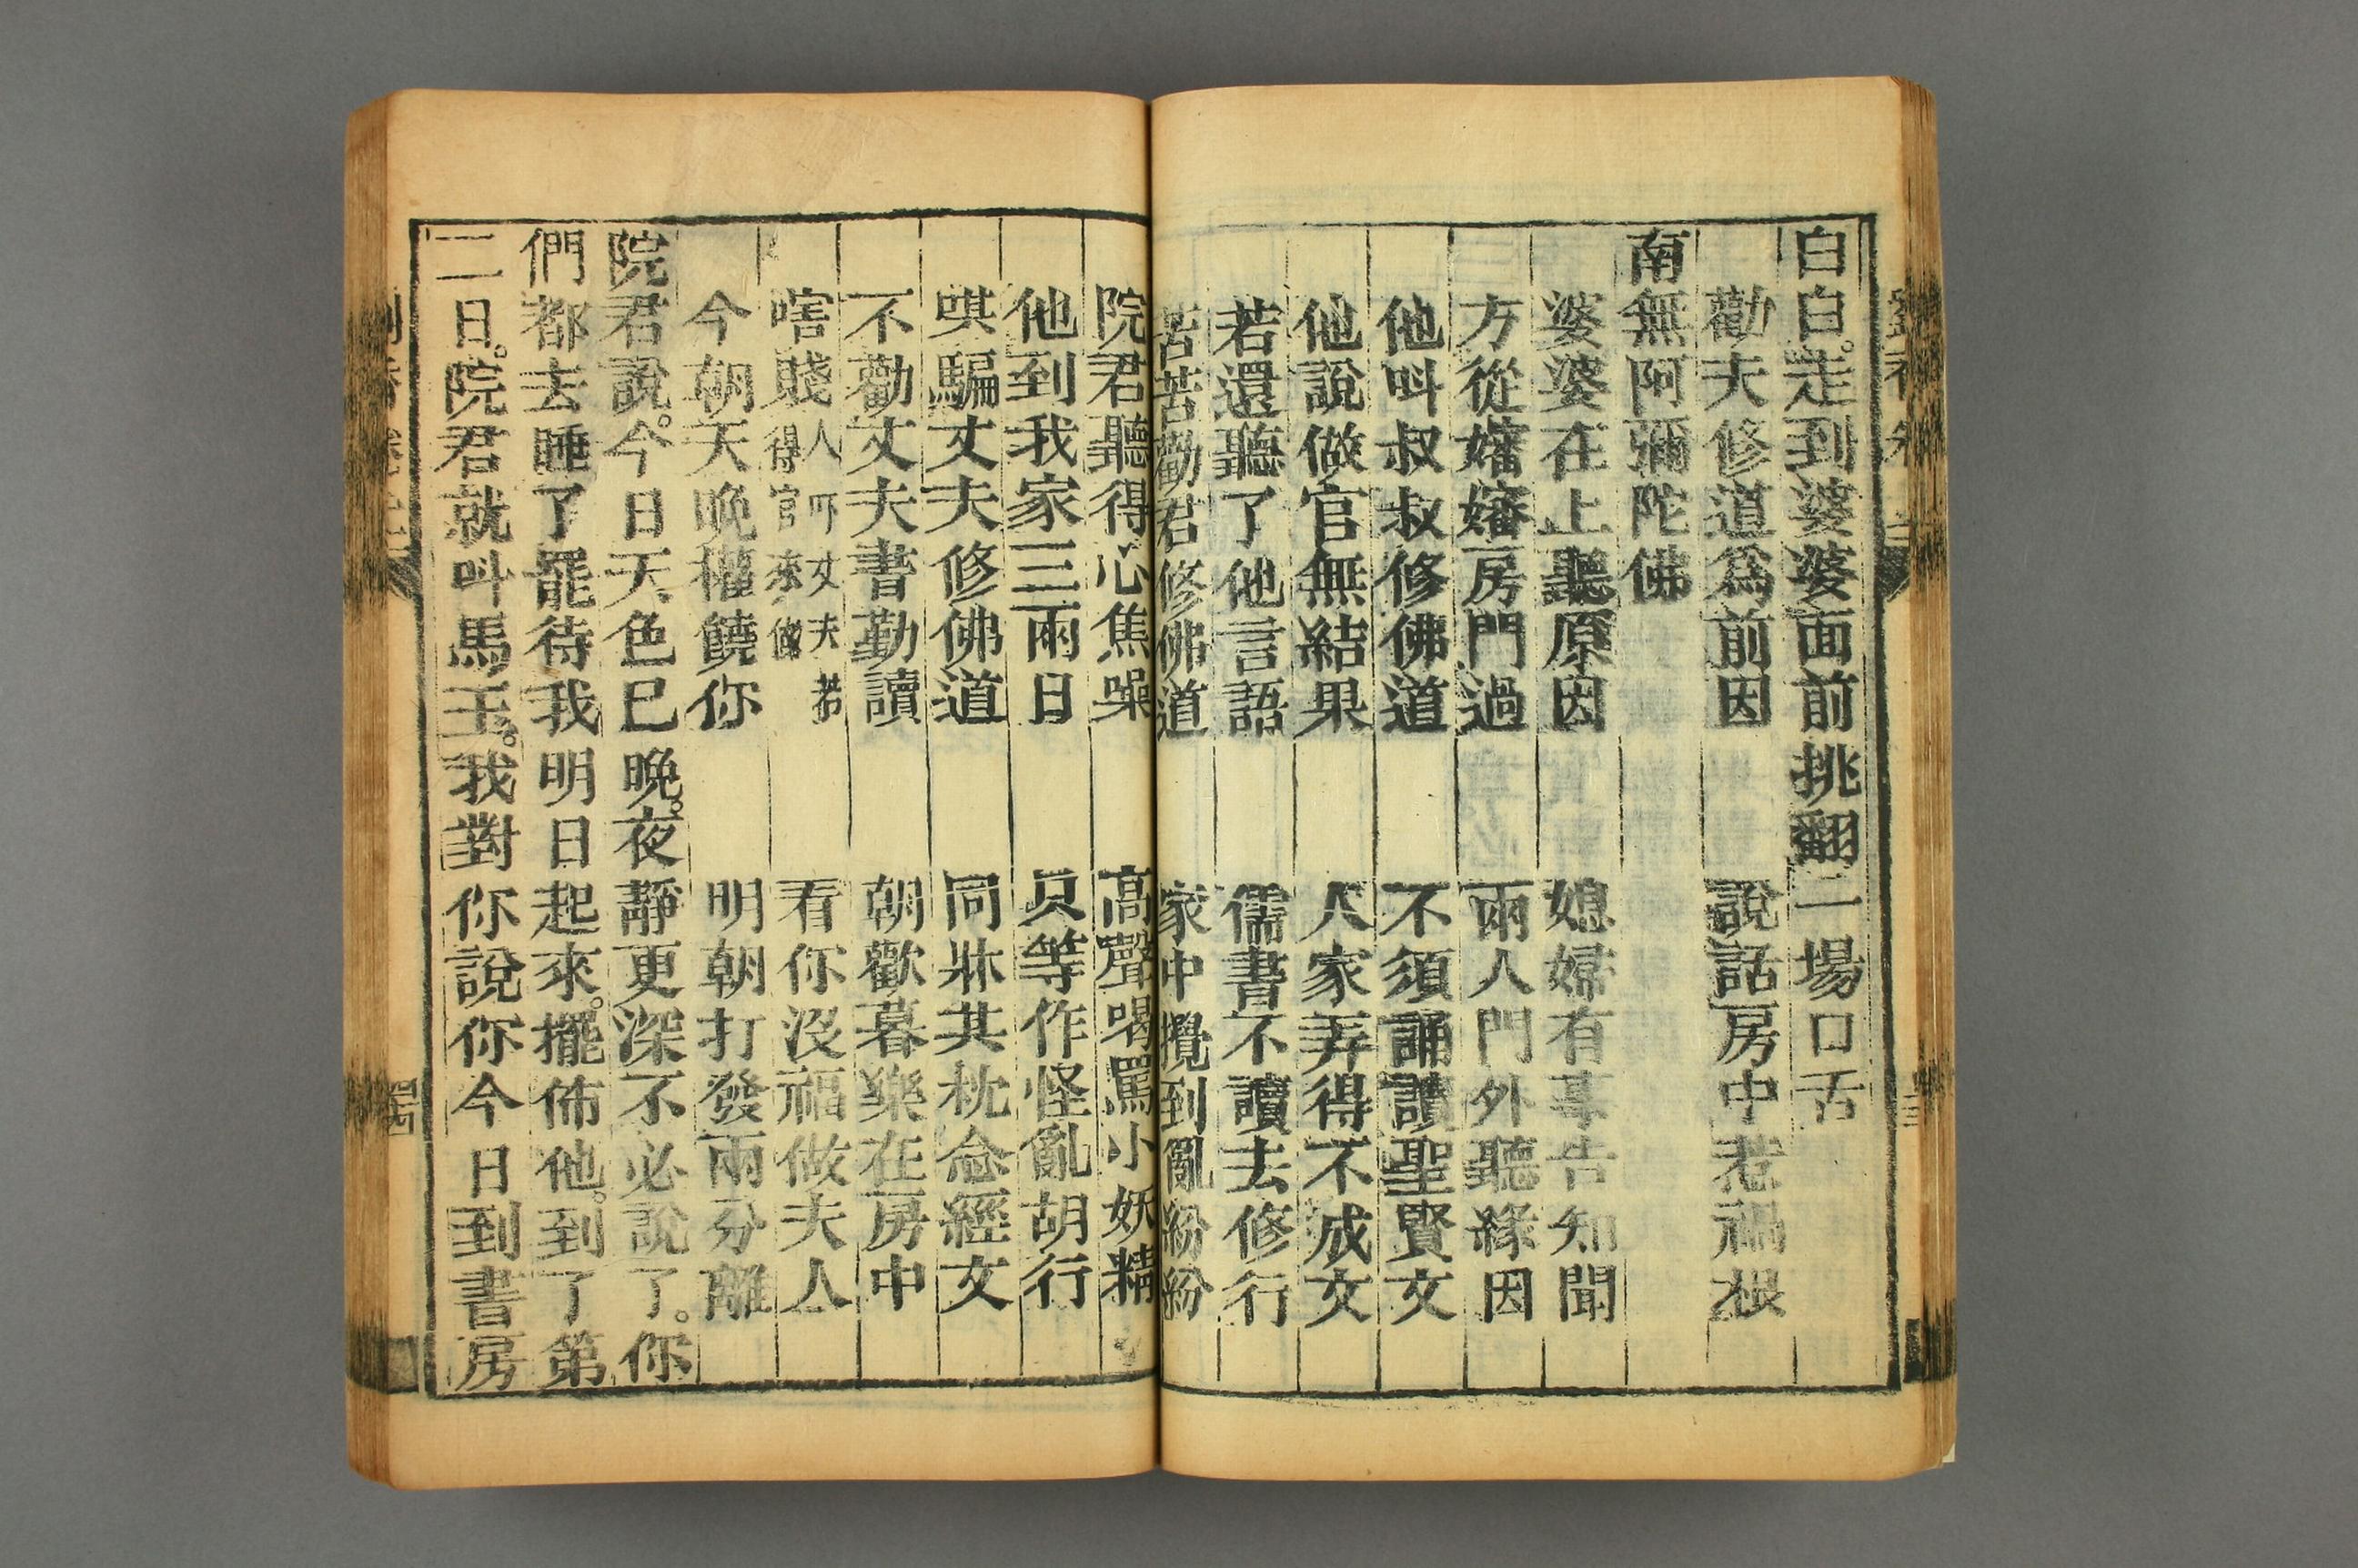 白白。走到婆婆面前挑翻一場口舌
勸夫修道爲前因　說話房中惹禍根
南無阿彌陀佛
婆婆在上聽原因　媳婦有事告知聞
方從嬸嬸房門過　兩人門外聽緣因
他呌叔叔修佛道　不須誦讀聖賢文
他說做官無結果　人家弄得不成文
若還聽了他言語　儒書不讀去修行
苦苦勸君修佛道　家中攪到亂紛紛
院君聽得心焦噪　高聲喝罵小妖精
他到我家三兩日　只等作怪亂胡行
哄騙丈夫修佛道　同牀共枕念經文
不勸丈夫書勤讀　朝歡暮樂在房中
嗐賤人丈夫若得官來做　看你没福做夫人
今朝天晚權饒你　明朝打發兩分離
院君說。今日天色已晚。夜靜更深不必說了。你
們都去睡了罷待我明日起來。擺佈他。到了第
二日。院君就呌馬玉。我對你說你今日到書房